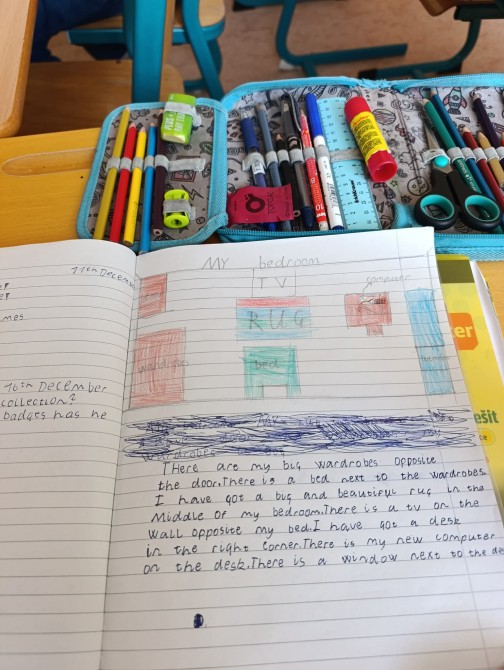 11th December
mes
16th December
collection?
badges has he
MY bedroom
TV
computer
RUG
wardrobes
bed
THere are my big wardrobes opposite
the door.There is a bed next to the wardrobes.
I have got a big and beautiful rug in the
Middle of my bedroom.There is a tv on the
wall opposite my bed.I have got a desk
in the right corner.There is my new computer
on the desk.There is a window next to the de
er
ešit